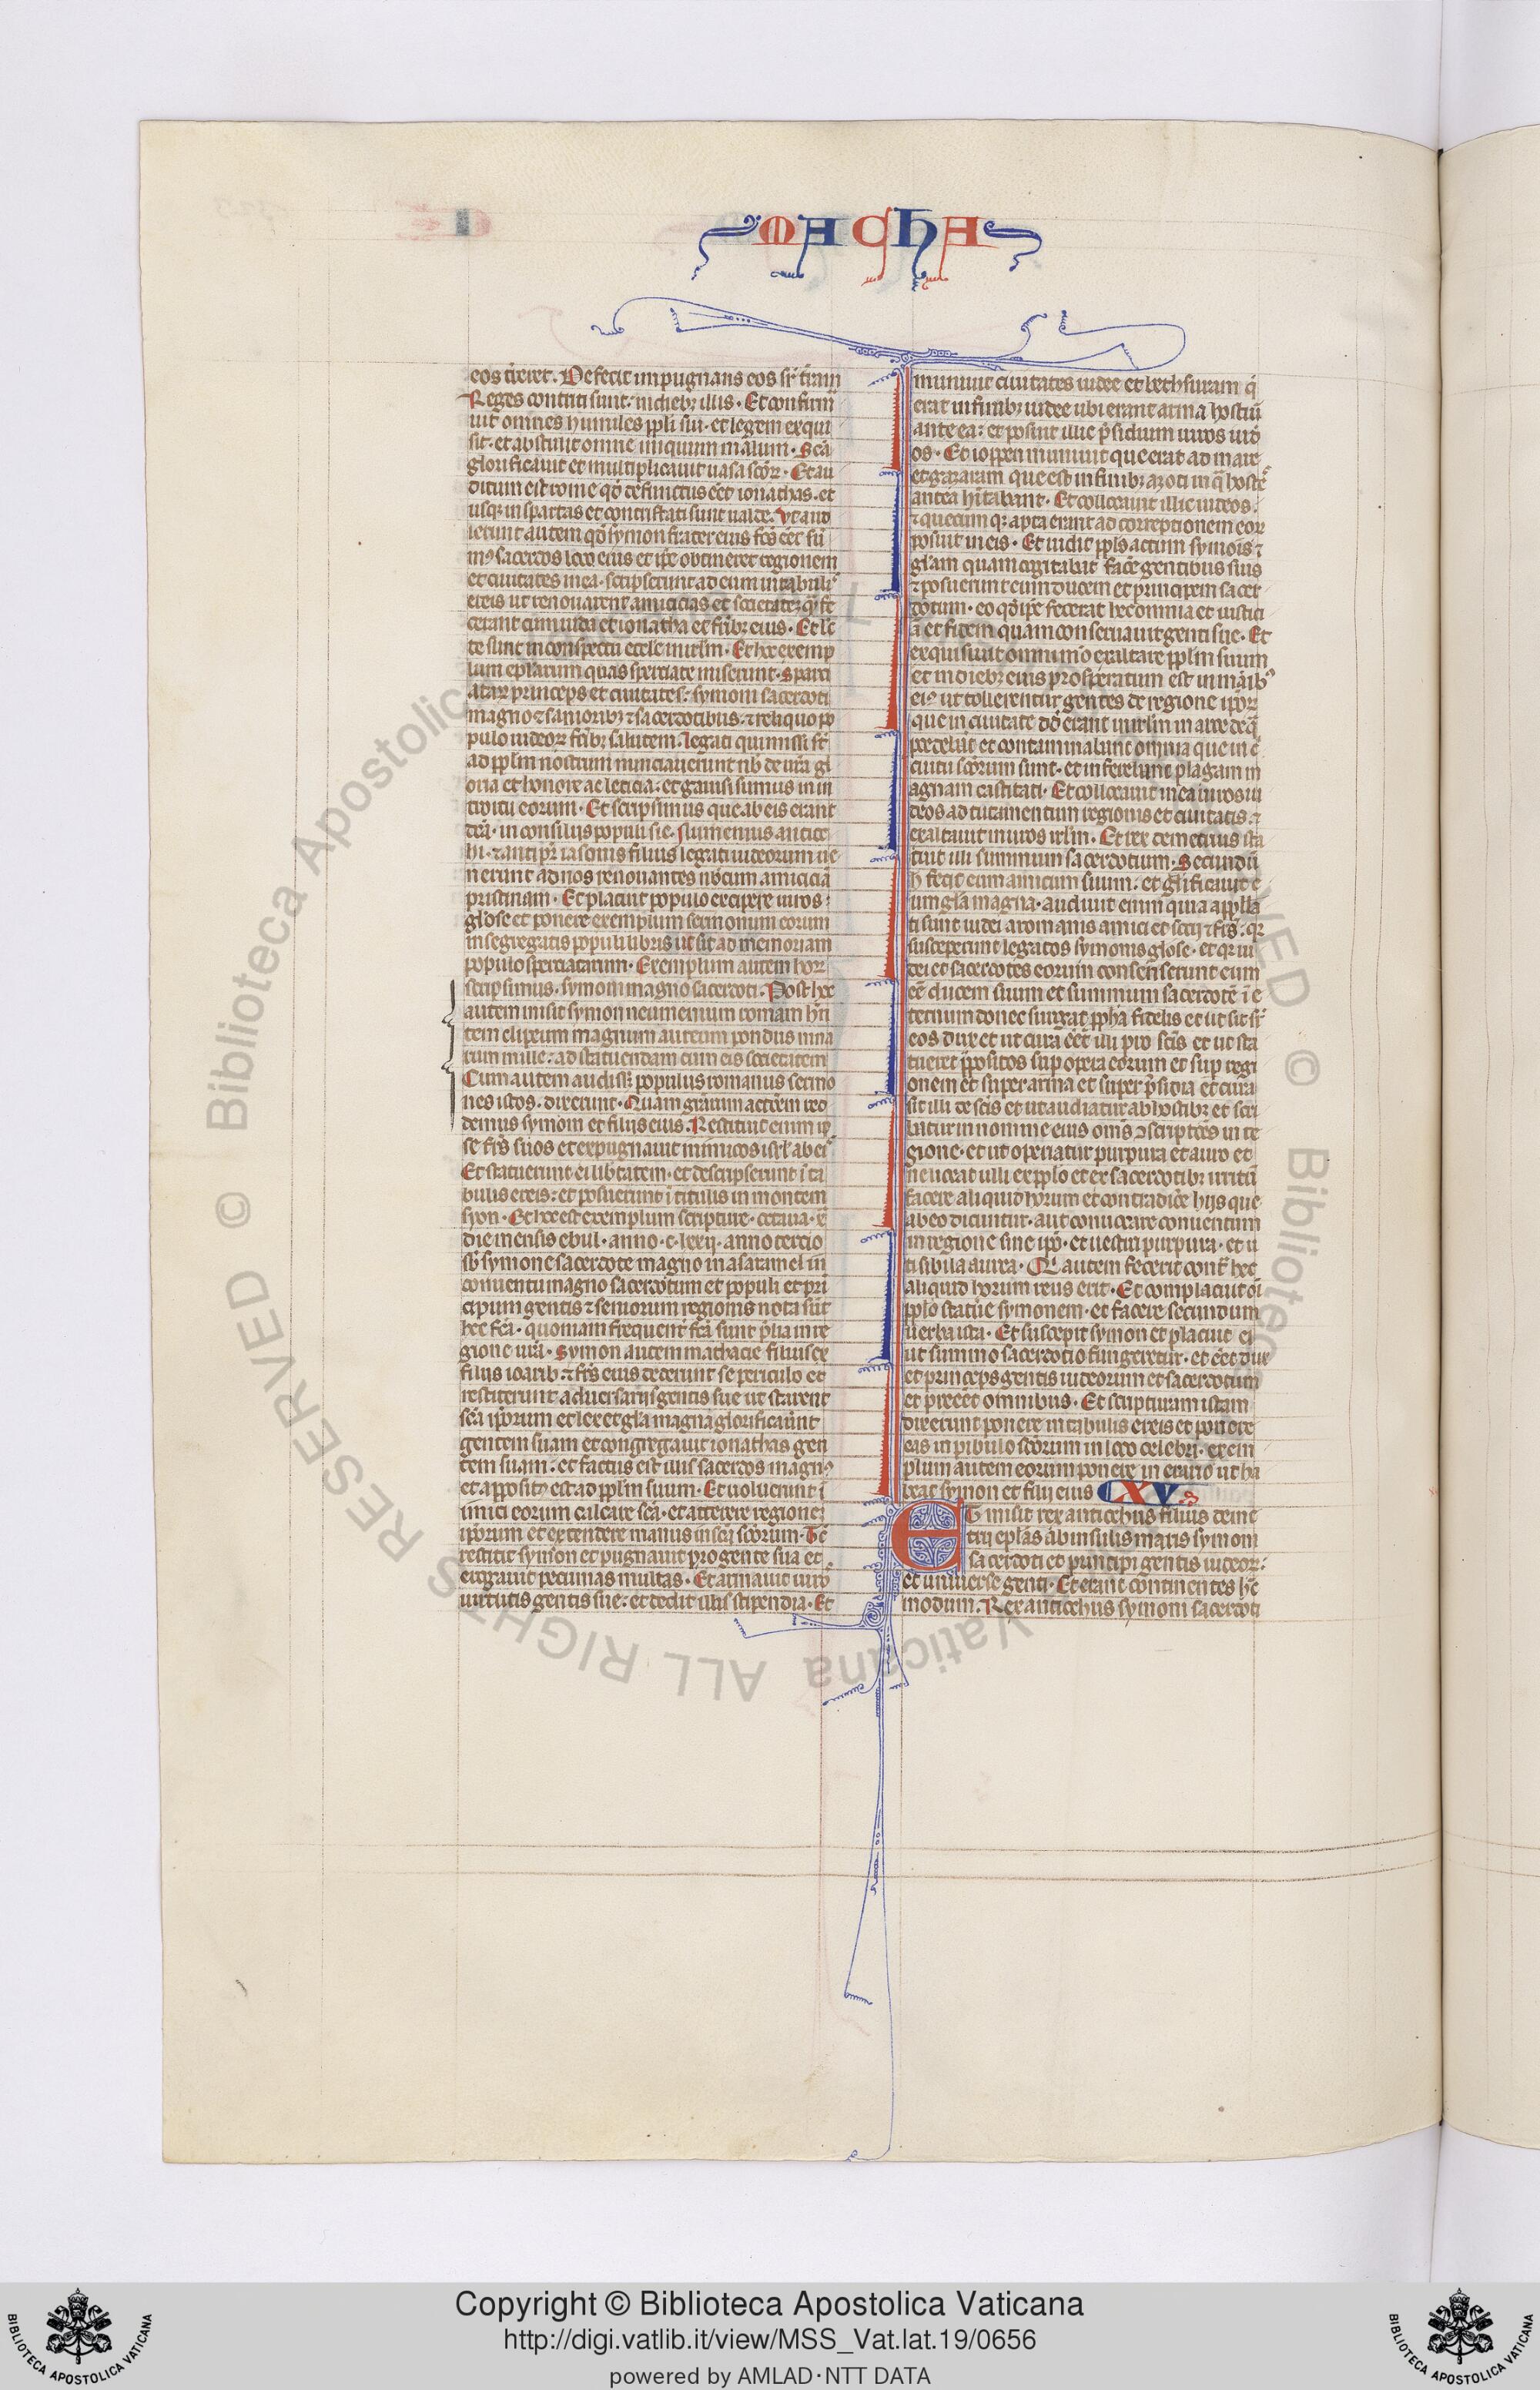 MACHA
eos tereret. Defecit inpugnans eos sr̄ t̄ram
Reges contriti sunt: in diebꝫ illis. Et confirm̄
uit omnes humiles ppli sui. et legem exqui
siit. et abstulit omne iniquum malum. Scā
glorificauit et multiplicauit uasa scōꝝ. Et au
ditum est rome qd̄ defunctus eēt ionathas. et
usqꝫ in spartas et contristati sunt ualde. Vt aud
ierunt autem qd̄ symon frater eius fcs̄ eēt sū
mꝰ sacerdos loco eius et ip̄e obtineret regionem
et ciuitates in ea. scripserunt ad eum in tabulis
ereis ut renouarent amicicias et societatem
cerant cum iuda et ionatha et fr̄ibꝫ eius. Et lc̄
te sunt in conspectu eccl̄e in irl̄m. Et hec exemp
lum ep̄larum quas sperciate miserunt. Sparci
ataꝝ princeps et ciuitates: symoni sacerdoti
magno ⁊ senioribꝫ ⁊ sacerdotibus. ⁊ reliquo po
pulo iudeoꝝ fr̄ibꝫ salutem. Legati qui missi st̄
ad pplm nostrum nunciauerunt nb̄ de ur̄a gl
oria et honore ac leticia: et gauisi sumus in in
troitu eorum. Et scripsimus que ab eis erant
dc̄a. in consiliis populi sic. Numenius antioc
hi. ⁊ antip̄r iasonis filius legati iudeorum ue
nerunt ad nos renouantes nob̄cum amiciciā
pristinam. Et placuit populo excipere uiros
gl̄ose et ponere exemplum sermonum eorum
in segregatis populi libris ut sit ad memoriam
populo sperciatarum. Exemplum autem hoꝝ
scripsimus. symoni magno sacerdoti. Post hec
autem misit symon neumenium romam hn̄
tem clipeum magnum aureum pondus mna
rum mille: ad statuendam cum eis societatem
Cum autem audisset populus romanus sermo
nes istos. dixerunt. Quam gratiam actionem red
demus symoni et filiis eius. Restituit enim ip
se frēs suos et expugnauit inimicos isrl̄ ab eis
Et statuerunt ei lib̄tatem. et descripserunt ī ta
bulis ereis: et posuerunt ī titulis in montem
syon. Et hec est exemplum scripture. octaua. x̄
die mensis ebul. anno .c.lxxij. anno tercio
sb̄ symone sacerdote magno in asaramel in
conuentu magno sacerdotum et populi et pri
cipum gentis ⁊ seniorum regionis nota sūt
hec fcā. quoniam frequent̄ fcā sunt p̄lia in re
gione ur̄a. Symon autem mathacie filius ex
filiis ioarib ⁊ frēs eius dederunt se periculo et
restiterunt aduersariis gentis sue ut starent
scā ip̄orum et lex et gl̄a magna glorificauer̄nt
gentem suam et congregauit ionathas gen
tem suam. et factus est illis sacerdos magnꝰ
et appositꝰ est ad pplm suum. Et uoluerunt ī
imici eorum calcare scā. et atterere regionē
ip̄orum et extendere manus in scā scōrum. Tc̄
restitit symon et pugnauit pro gente sua et
erogauit pecunias multas. Et armauit uiro
uirtutis gentis sue: et dedit illis stipendia. Et
muniuit ciuitates iudee et bethsuram q̄
erat in finibꝫ iudee ubi erant arma hostiū
ante ea: et posuit illic p̄sidium uiros iud
os. Et ioppen muniuit que erat ad mare
et gazaram que est in finibꝫ azoti in q̄ hostes
antea habitabant. Et collocauit illic iudeos.
⁊ quecumqꝫ apta erant ad correptionem eoꝝ
posuit in eis. Et uidit ppls actum symoīs ⁊
gl̄am quam cogitabat facere gentibus suis
⁊ posuerunt eum ducem et principem sacer
dotum. eo qd̄ ip̄e fecerat hec omnia et iustici
ā et fidem quam conseruauit genti sue. Et
exquisiuit omni modo exaltare pplm suum
et in diebꝫ eius prosperatum est in manibꝰ
eiꝰ ut tollerentur gentes de regione ip̄oꝝ
que in ciuitate dd̄ erant in irl̄m in arce de q̄
procedebāt et contaminabant omnia que in c̄
cuitu scōrum sunt. et inferebant plagam m
agnam castitati. Et collocauit in ea uiros iu
deos ad tutamentum regionis et ciuitatis. ⁊
exaltauit muros irl̄m. Et rex demetrius sta
tuit illi summum sacerdotium. Secundū
h̄ fecit eum amicum suum. et gl̄ificauit e
um gl̄a magna. audiuit enim quia app̄lla
ti sunt iudei a romanis amici et socij ⁊ frēs: qꝛ
susceperunt legatos symonis gl̄ose. et qꝛ iu
dei et sacerdotes eorum consenserunt eum
eē ducem suum et summum sacerdotē ī e
ternum donec surgat ppha fidelis et ut sit sr̄
eos dux et ut cura eēt illi pro scīs et ut sta
tueret p̄positos sup opera eorum et sup regi
onem et super arma et super p̄sidia et cura
sit illi de scīs et ut audiatur ab hostibꝫ et scri
bantur in nomine eius om̄s conscriptōes in re
gione. et ut operiatur purpura et auro et
ne liceat ulli ex pplo et ex sacerdotibꝫ irritū
facere aliquid horum et contradicere hijs que
ab eo dicuntur. aut conuocare conuentum
in regione sine ip̄o. et uestiri purpura. et u
ti fibula aurea. Qi autem fecerit cont̄ hec
aliquid horum reus erit. Et complacuit oī
pplo statuere symonem. et facere secundum
uerba ista. Et suscepit symon et placuit ei
ut summo sacerdotio fungeretur. et eēt dux
et princeps gentis iudeorum et sacerdotum
et preēēt omnibus. Et scripturam istam
dixerunt ponere in tabulis ereis et ponere
eas in pibulo scōrum in loco celebri. exem
plum autem eorum ponere in erario ut ha
beat symon et filij eius CXV
Et misit rex antiochus filius deme
trij eplās ab insulis maris symoni
sacerdoti et principi gentis iudeoꝝ:
et uniuerse genti. Et erant continentes hc̄
modum. Rex antiochus symoni sacerdoti
Copyright © Biblioteca Apostolica Vaticana
http://digi.vatlib.it/view/MSS_Vat.lat.19/0656
powered by AMLAD·NTT DATA
BIBLIOTECA APOSTOLICA VATICANA
BIBLIOTECA APOSTOLICA VATICANA
© Biblioteca Apostolica Vaticana ALL RIGHTS RESERVED